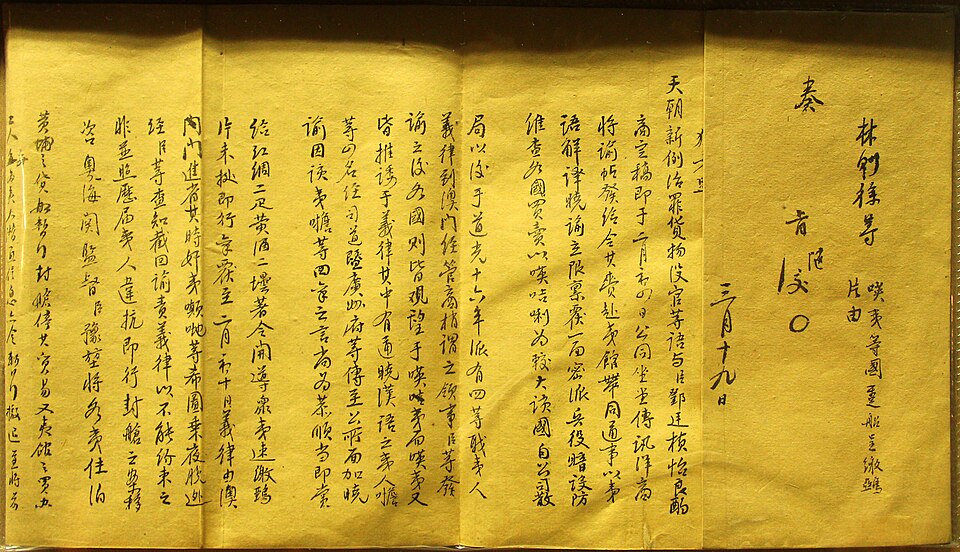 奏
林則徐等
𠸄夷等國躉船呈繳鴉
片由
旨
隨
交〇
三月十九日
天朝新例治罪貨物没官等語与臣鄧廷楨怡良酌
商定稿即于二月初四日公同坐堂傳訊洋商
将諭帖發給令其賫赴夷館帶同通事以夷
語解譯曉諭立限禀覆一面密派兵役暗設防
維查各國買賣以𠸄咭唎為較大該國自公司散
局以後于道光十六年派有四等職夷人
義律到澳门經管商梢謂之領事臣等發
諭之後各國則皆觀望于𠸄夷而𠸄夷又
皆推諉于義律其中有通曉漢語之夷人噡
等四名經司道暨廣州府等傳至公所面加曉
諭因該夷噡等四之言尚為恭順當即賞
給红綢二疋黄酒二壜著令開導衆夷速繳鴉
片未即行禀覆至二月初十日義律由澳
门進省其時奸夷嚬哋等希圖乗夜脱逃
經臣等查知截回諭責義律以不能約束之
非並照歷届夷人違抗即行封艙之案移
咨粤海関監督臣豫堃将各夷住泊
黄埔之貨船暂行封艙停其貿易又夷館之買办
工人夷人暂行撤退並將